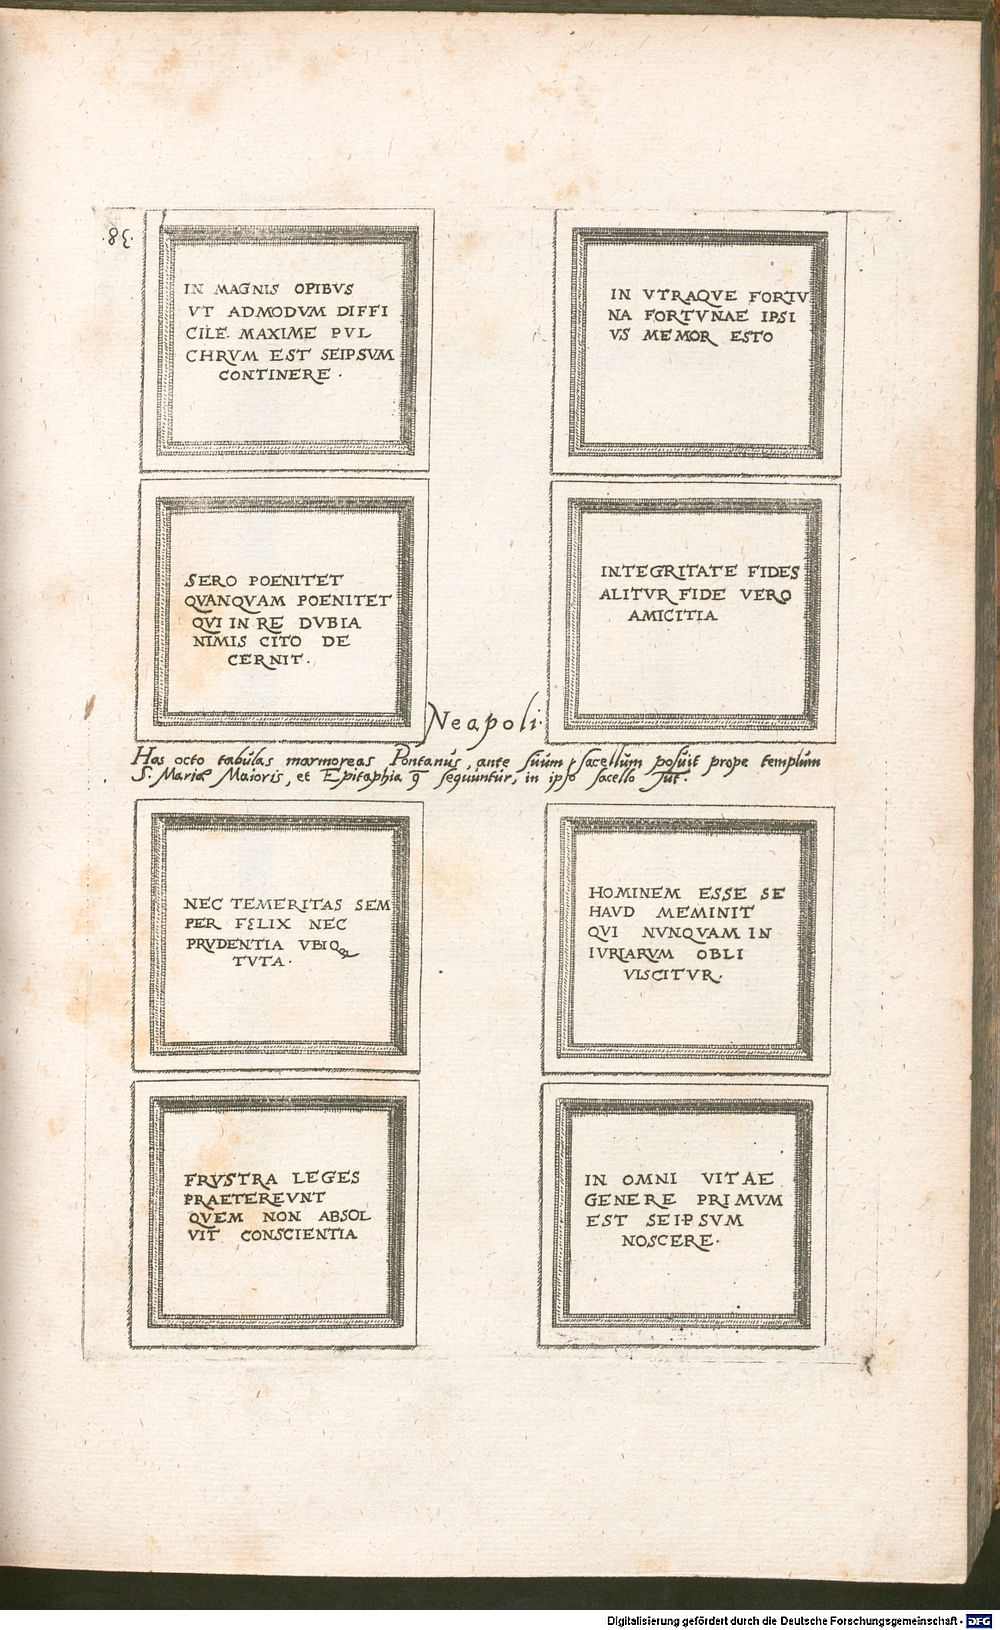 .38.
IN MAGNIS OPIBVS
VT ADMODVM DIFFI
CILE. MAXIME PVL
CHRVM EST SEIPSVM
CONTINERE .
IN VTRAQVE FORTV
NA FORTVNAE IPSI
VS MEMOR ESTO
SERO POENITET
QVANQVAM POENITET
QVI IN RE DVBIA
NIMIS CITO DE
CERNIT .
INTEGRITATE FIDES
ALITVR FIDE VERO
AMICITIA
Neapoli.
Has octo tabulas marmoreas Pontanus, ante suum sacellum posuit prope templum
S. Mariæ Maioris, et Epitaphia q̃ sequuntur, in ipso sacello sũt.
NEC TEMERITAS SEM
PER FELIX NEC
PRVDENTIA VBIQꝫ
TVTA .
HOMINEM ESSE SE
HAVD MEMINIT
QVI NVNQVAM IN
IVRIARVM OBLI
VISCITVR .
FRVSTRA LEGES
PRAETEREVNT
QVEM NON ABSOL
VIT CONSCIENTIA
IN OMNI VITAE
GENERE PRIMVM
EST SEIPSVM
NOSCERE .
Digitalisierung gefördert durch die Deutsche Forschungsgemeinschaft - DFG